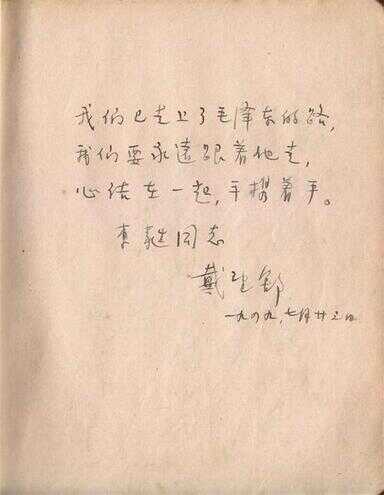 我们已走上了毛泽东的路,
我们要永遠跟着他走,
心结在一起,手携着手。
同志
戴
一九四九,七月廿三日